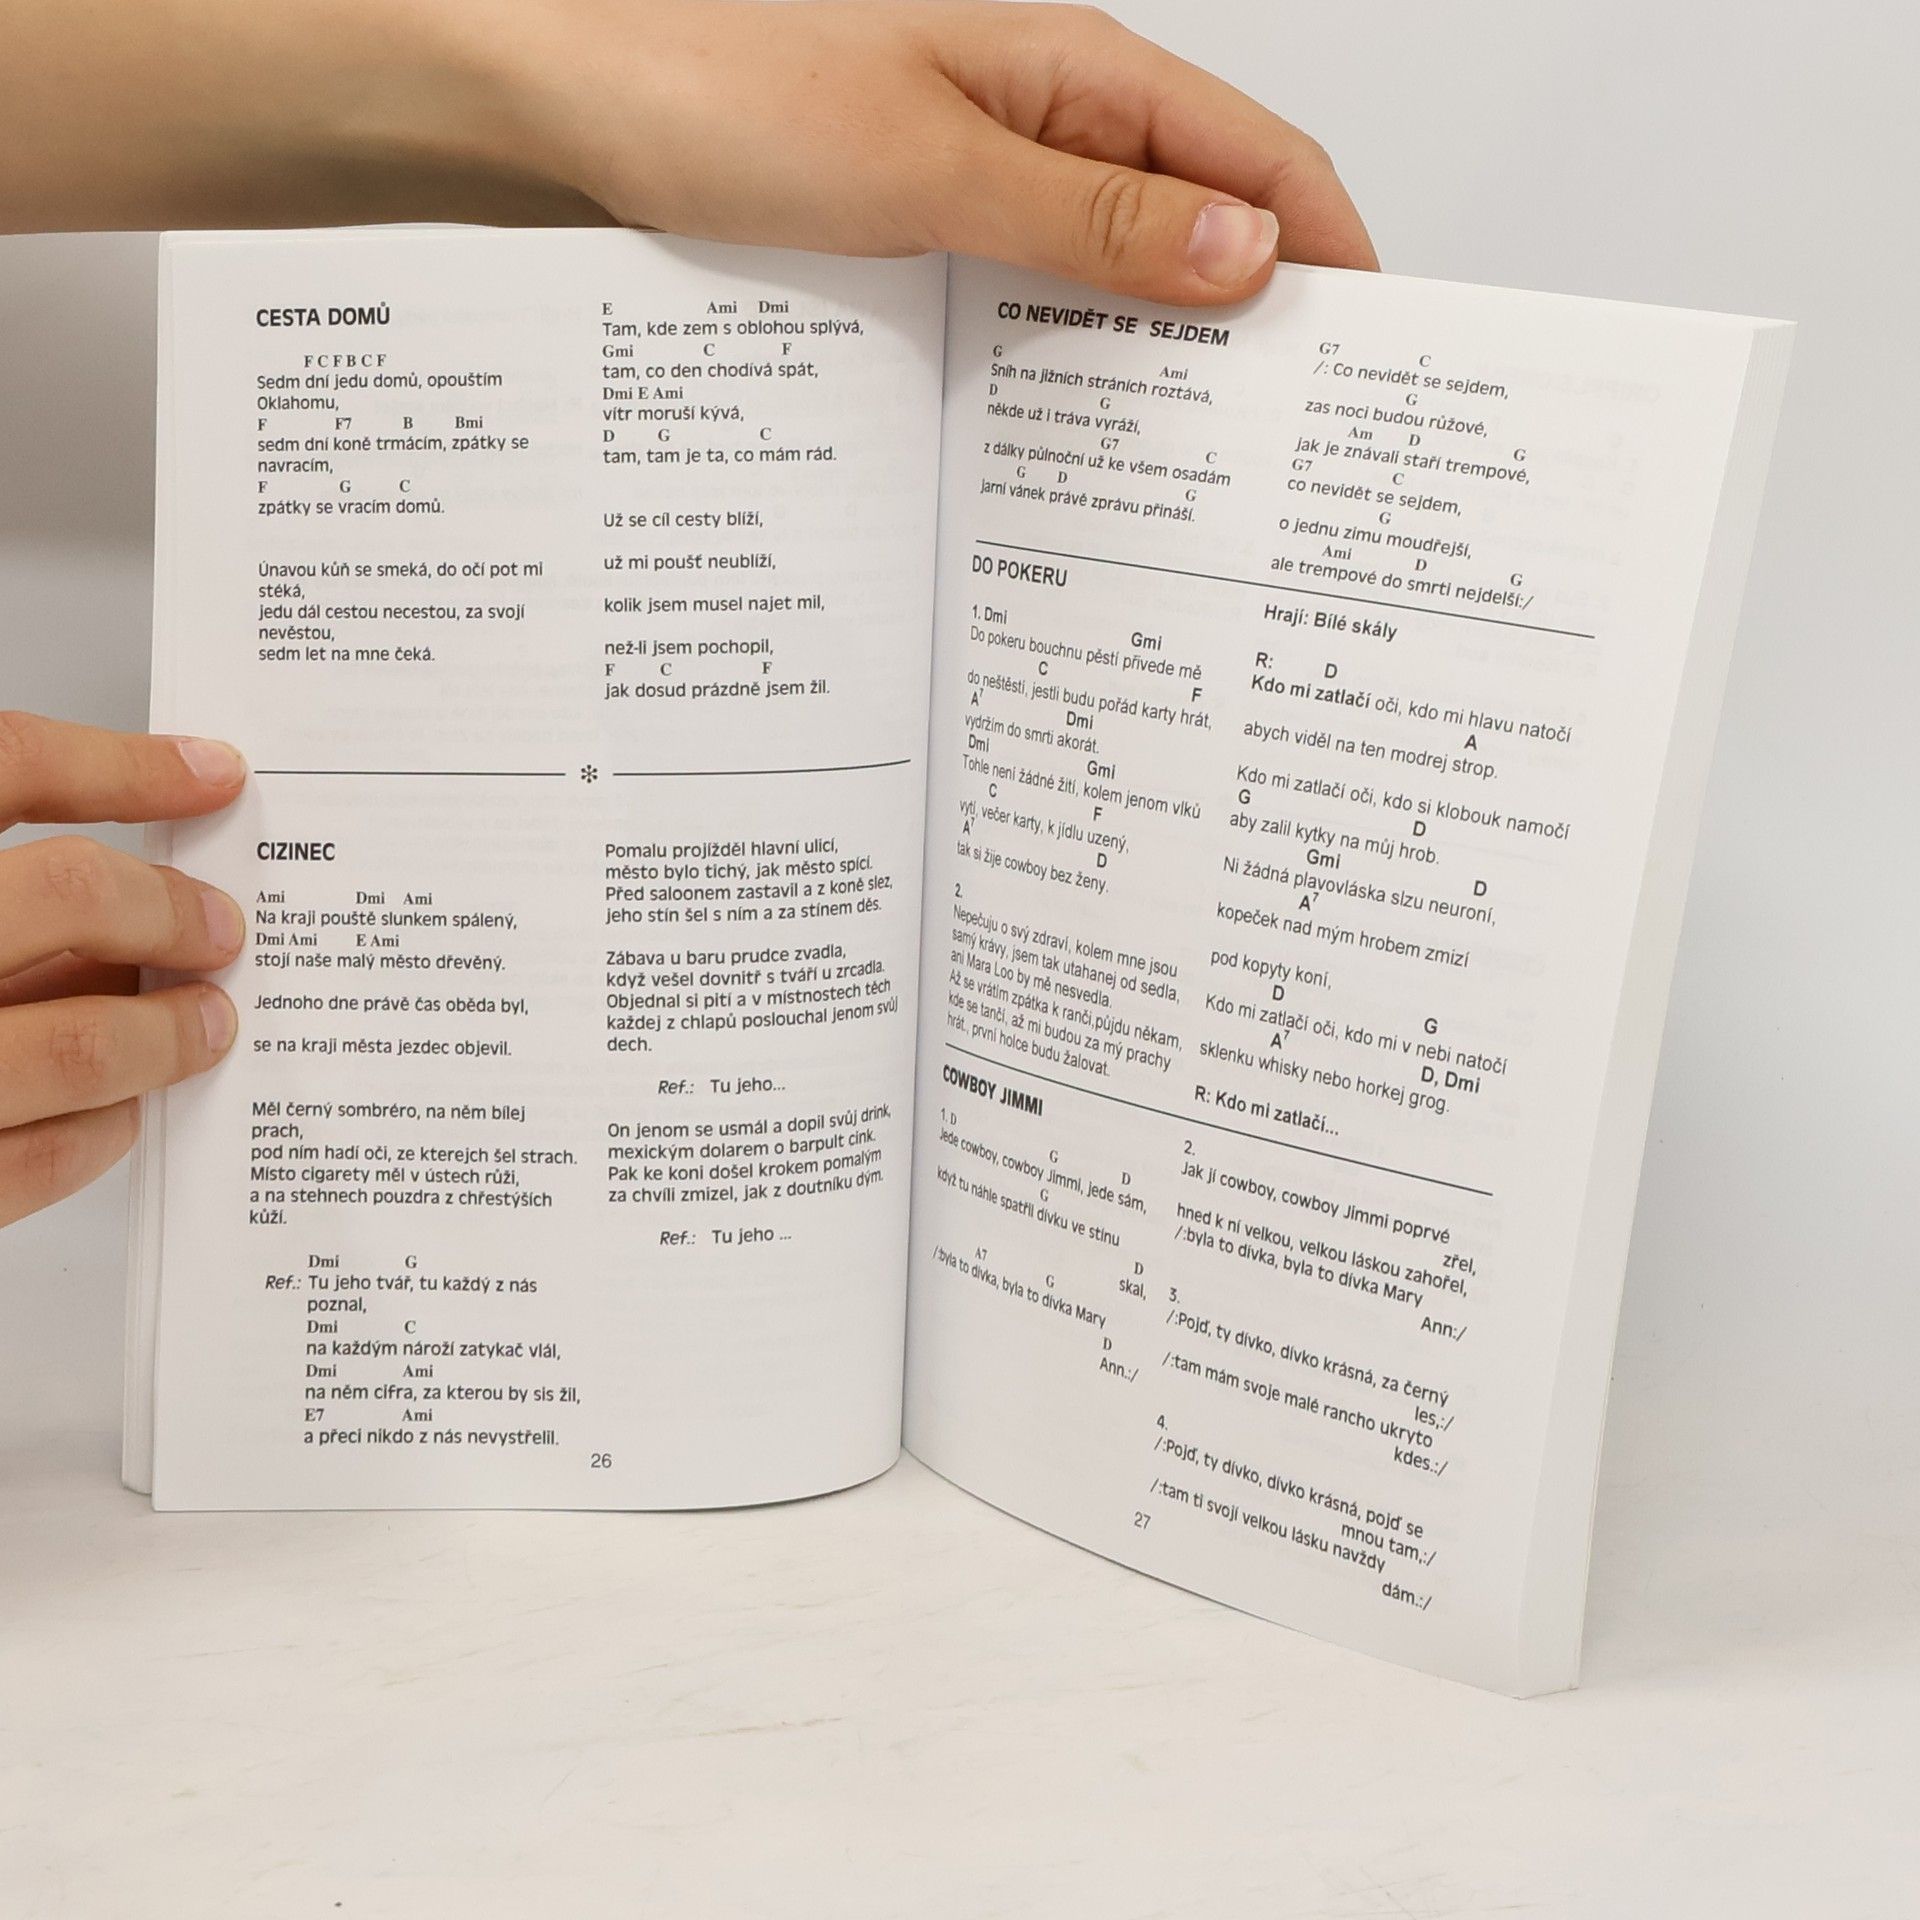 CESTA DOMŮ
F C F B C F
Sedm dní jedu domů, opouštím
Oklahomu,
F F7 B Bmi
sedm dní koně trmácím, zpátky se
navracím,
F G C
zpátky se vracím domů.
Únavou kůň se smeká, do očí pot mi
stéká,
jedu dál cestou necestou, za svojí
nevěstou,
sedm let na mne čeká.
E Ami Dmi
Tam, kde zem s oblohou splývá,
Gmi C F
tam, co den chodívá spát,
Dmi E Ami
vítr moruší kývá,
D G C
tam, tam je ta, co mám rád.
Už se cíl cesty blíží,
už mi poušť neublíží,
kolik jsem musel najet mil,
než-li jsem pochopil,
F C F
jak dosud prázdně jsem žil.
✻
CIZINEC
Ami Dmi Ami
Na kraji pouště slunkem spálený,
Dmi Ami E Ami
stojí naše malý město dřevěný.
Jednoho dne právě čas oběda byl,
se na kraji města jezdec objevil.
Měl černý sombréro, na něm bílej
prach,
pod ním hadí oči, ze kterejch šel strach.
Místo cigarety měl v ústech růži,
a na stehnech pouzdra z chřestýších
kůží.
Dmi G
Ref.: Tu jeho tvář, tu každý z nás
poznal,
Dmi C
na každým nároží zatykač vlál,
Dmi Ami
na něm cifra, za kterou by sis žil,
E7 Ami
a přeci nikdo z nás nevystřelil.
Pomalu projížděl hlavní ulicí,
město bylo tichý, jak město spící.
Před saloonem zastavil a z koně slez,
jeho stín šel s ním a za stínem děs.
Zábava u baru prudce zvadla,
když vešel dovnitř s tváří u zrcadla.
Objednal si pití a v místnostech těch
každej z chlapů poslouchal jenom svůj
dech.
Ref.: Tu jeho...
On jenom se usmál a dopil svůj drink,
mexickým dolarem o barpult cink.
Pak ke koni došel krokem pomalým
za chvíli zmizel, jak z doutníku dým.
Ref.: Tu jeho ...
26
CO NEVIDĚT SE SEJDEM
G Ami
Sníh na jižních stráních roztává,
D G
někde už i tráva vyráží,
G7 C
z dálky půlnoční už ke všem osadám
G D G
jarní vánek právě zprávu přináší.
G7 C
/: Co nevidět se sejdem,
G
zas noci budou růžové,
Am D G
jak je znávali staří trempové,
G7 C
co nevidět se sejdem,
G
o jednu zimu moudřejší,
Ami D G
ale trempové do smrti nejdelší:/
DO POKERU
Hrají: Bílé skály
1. Dmi Gmi
Do pokeru bouchnu pěstí přivede mě
C F
do neštěstí, jestli budu pořád karty hrát,
A7 Dmi
vydržím do smrti akorát.
Dmi Gmi
Tohle není žádné žití, kolem jenom vlků
C F
vytí, večer karty, k jídlu uzený,
A7 D
tak si žije cowboy bez ženy.
2.
Nepečuju o svý zdraví, kolem mne jsou
samý krávy, jsem tak utahanej od sedla,
ani Mara Loo by mě nesvedla.
Až se vrátím zpátka k ranči,půjdu někam,
kde se tančí, až mi budou za mý prachy
hrát., první holce budu žalovat.
R: D
Kdo mi zatlačí oči, kdo mi hlavu natočí
A
abych viděl na ten modrej strop.
Kdo mi zatlačí oči, kdo si klobouk namočí
G D
aby zalil kytky na můj hrob.
Gmi D
Ni žádná plavovláska slzu neuroní,
A7
kopeček nad mým hrobem zmizí
pod kopyty koní,
D G
Kdo mi zatlačí oči, kdo mi v nebi natočí
A7 D, Dmi
sklenku whisky nebo horkej grog.
R: Kdo mi zatlačí...
COWBOY JIMMI
1. D G D
Jede cowboy, cowboy Jimmi, jede sám,
G
když tu náhle spatřil dívku ve stínu
D
skal,
A7 G
/:byla to dívka, byla to dívka Mary
D
Ann.:/
2.
Jak ji cowboy, cowboy Jimmi poprvé
zřel,
hned k ní velkou, velkou láskou zahořel,
/:byla to dívka, byla to dívka Mary
Ann:/
3.
/:Pojď, ty dívko, dívko krásná, za černý
les,:/
/:tam mám svoje malé rancho ukryto
kdes.:/
4.
/:Pojď, ty dívko, dívko krásná, pojď se
mnou tam,:/
/:tam ti svojí velkou lásku navždy
dám.:/
27